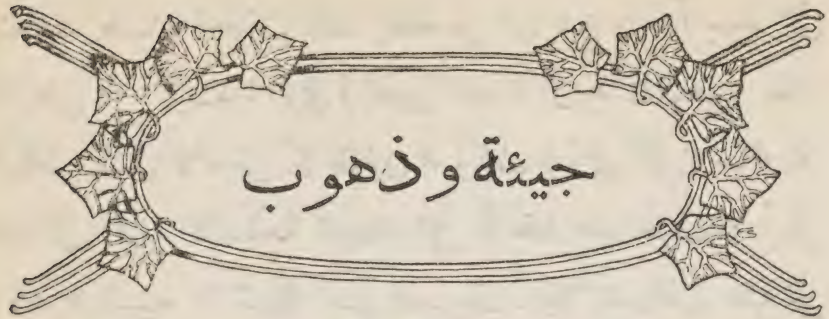 جيئة وذهوب